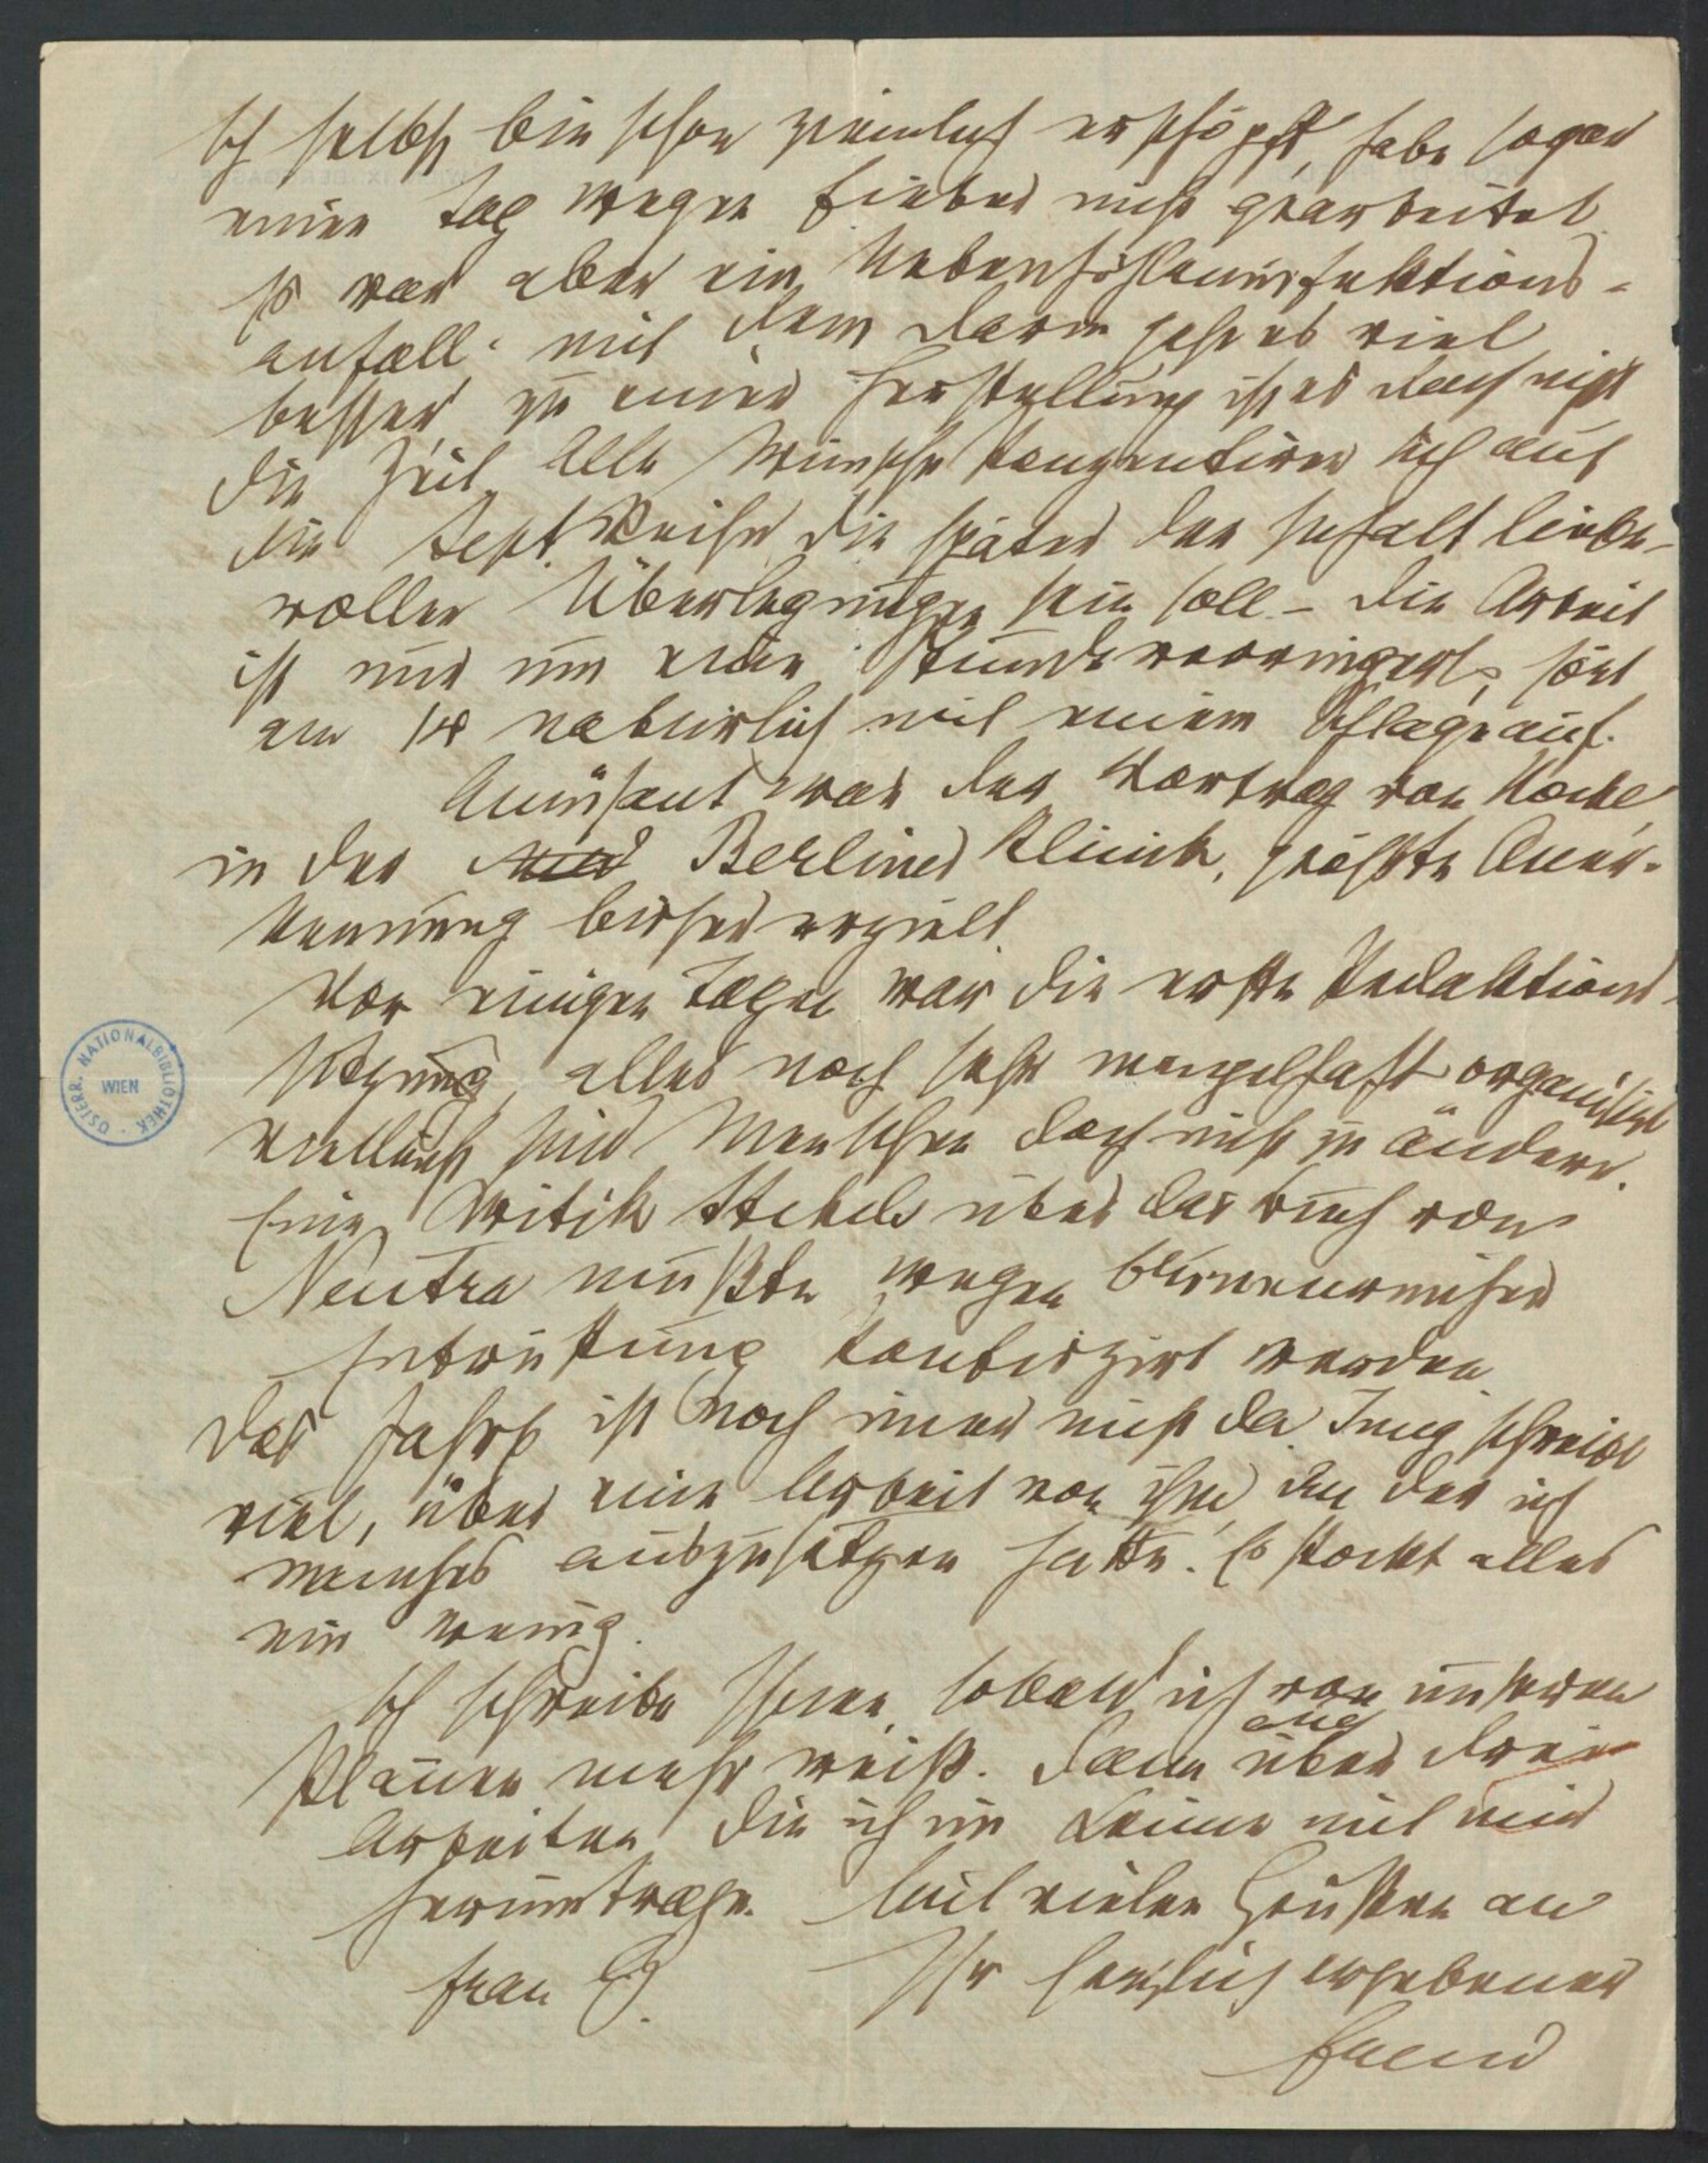 Ich selbst bin schon ziemlich erschöpft, habe sogar
einen Tag wegen Fieber nicht gearbeitet.
Es war aber ein Nebenhöhleninfektions-
anfall; mit dem Darm geht es viel
besser, zu einer Herstellung ist es doch nicht
die Zeit. Alle Wünsche konzentriren sich auf
die Sept. Reise, die später der Inhalt liebe-
voller Überlegungen sein soll – Die Arbeit
ist nur um eine Stunde verringert, hört
am 14 natürlich mit einem Schlage auf.
Amüsant war der Vortrag von
in der Berliner Klinik, größte Aner-
kennung bisher erzielt.
Vor einigen Tagen war die erste Redaktions-
sitzung, alles noch sehr mangelhaft organisirt
vielleicht sind Menschen doch nicht zu ändern.
Eine Kritik Stekels über das Buch von
Neutra mußte wegen
Entrüstung konfiszirt werden.
Das Jahrb ist noch immer nicht da. Jung schreibt
viel, über eine Arbeit von ihm, an der ich
manches auszusetzen hatte. Es stockt alles
ein wenig.
Ich schreibe Ihnen, sobald ich von unseren
Plänen mehr weiß. Dann auch über drei
Arbeiten, die ich im Keime mit mir
herumtrage. Mit vielen Grüßen an
Frau G. Ihr herzlich ergebener
Freud
ÖSTERR. NATIONALBIBLIOTHEK WIEN